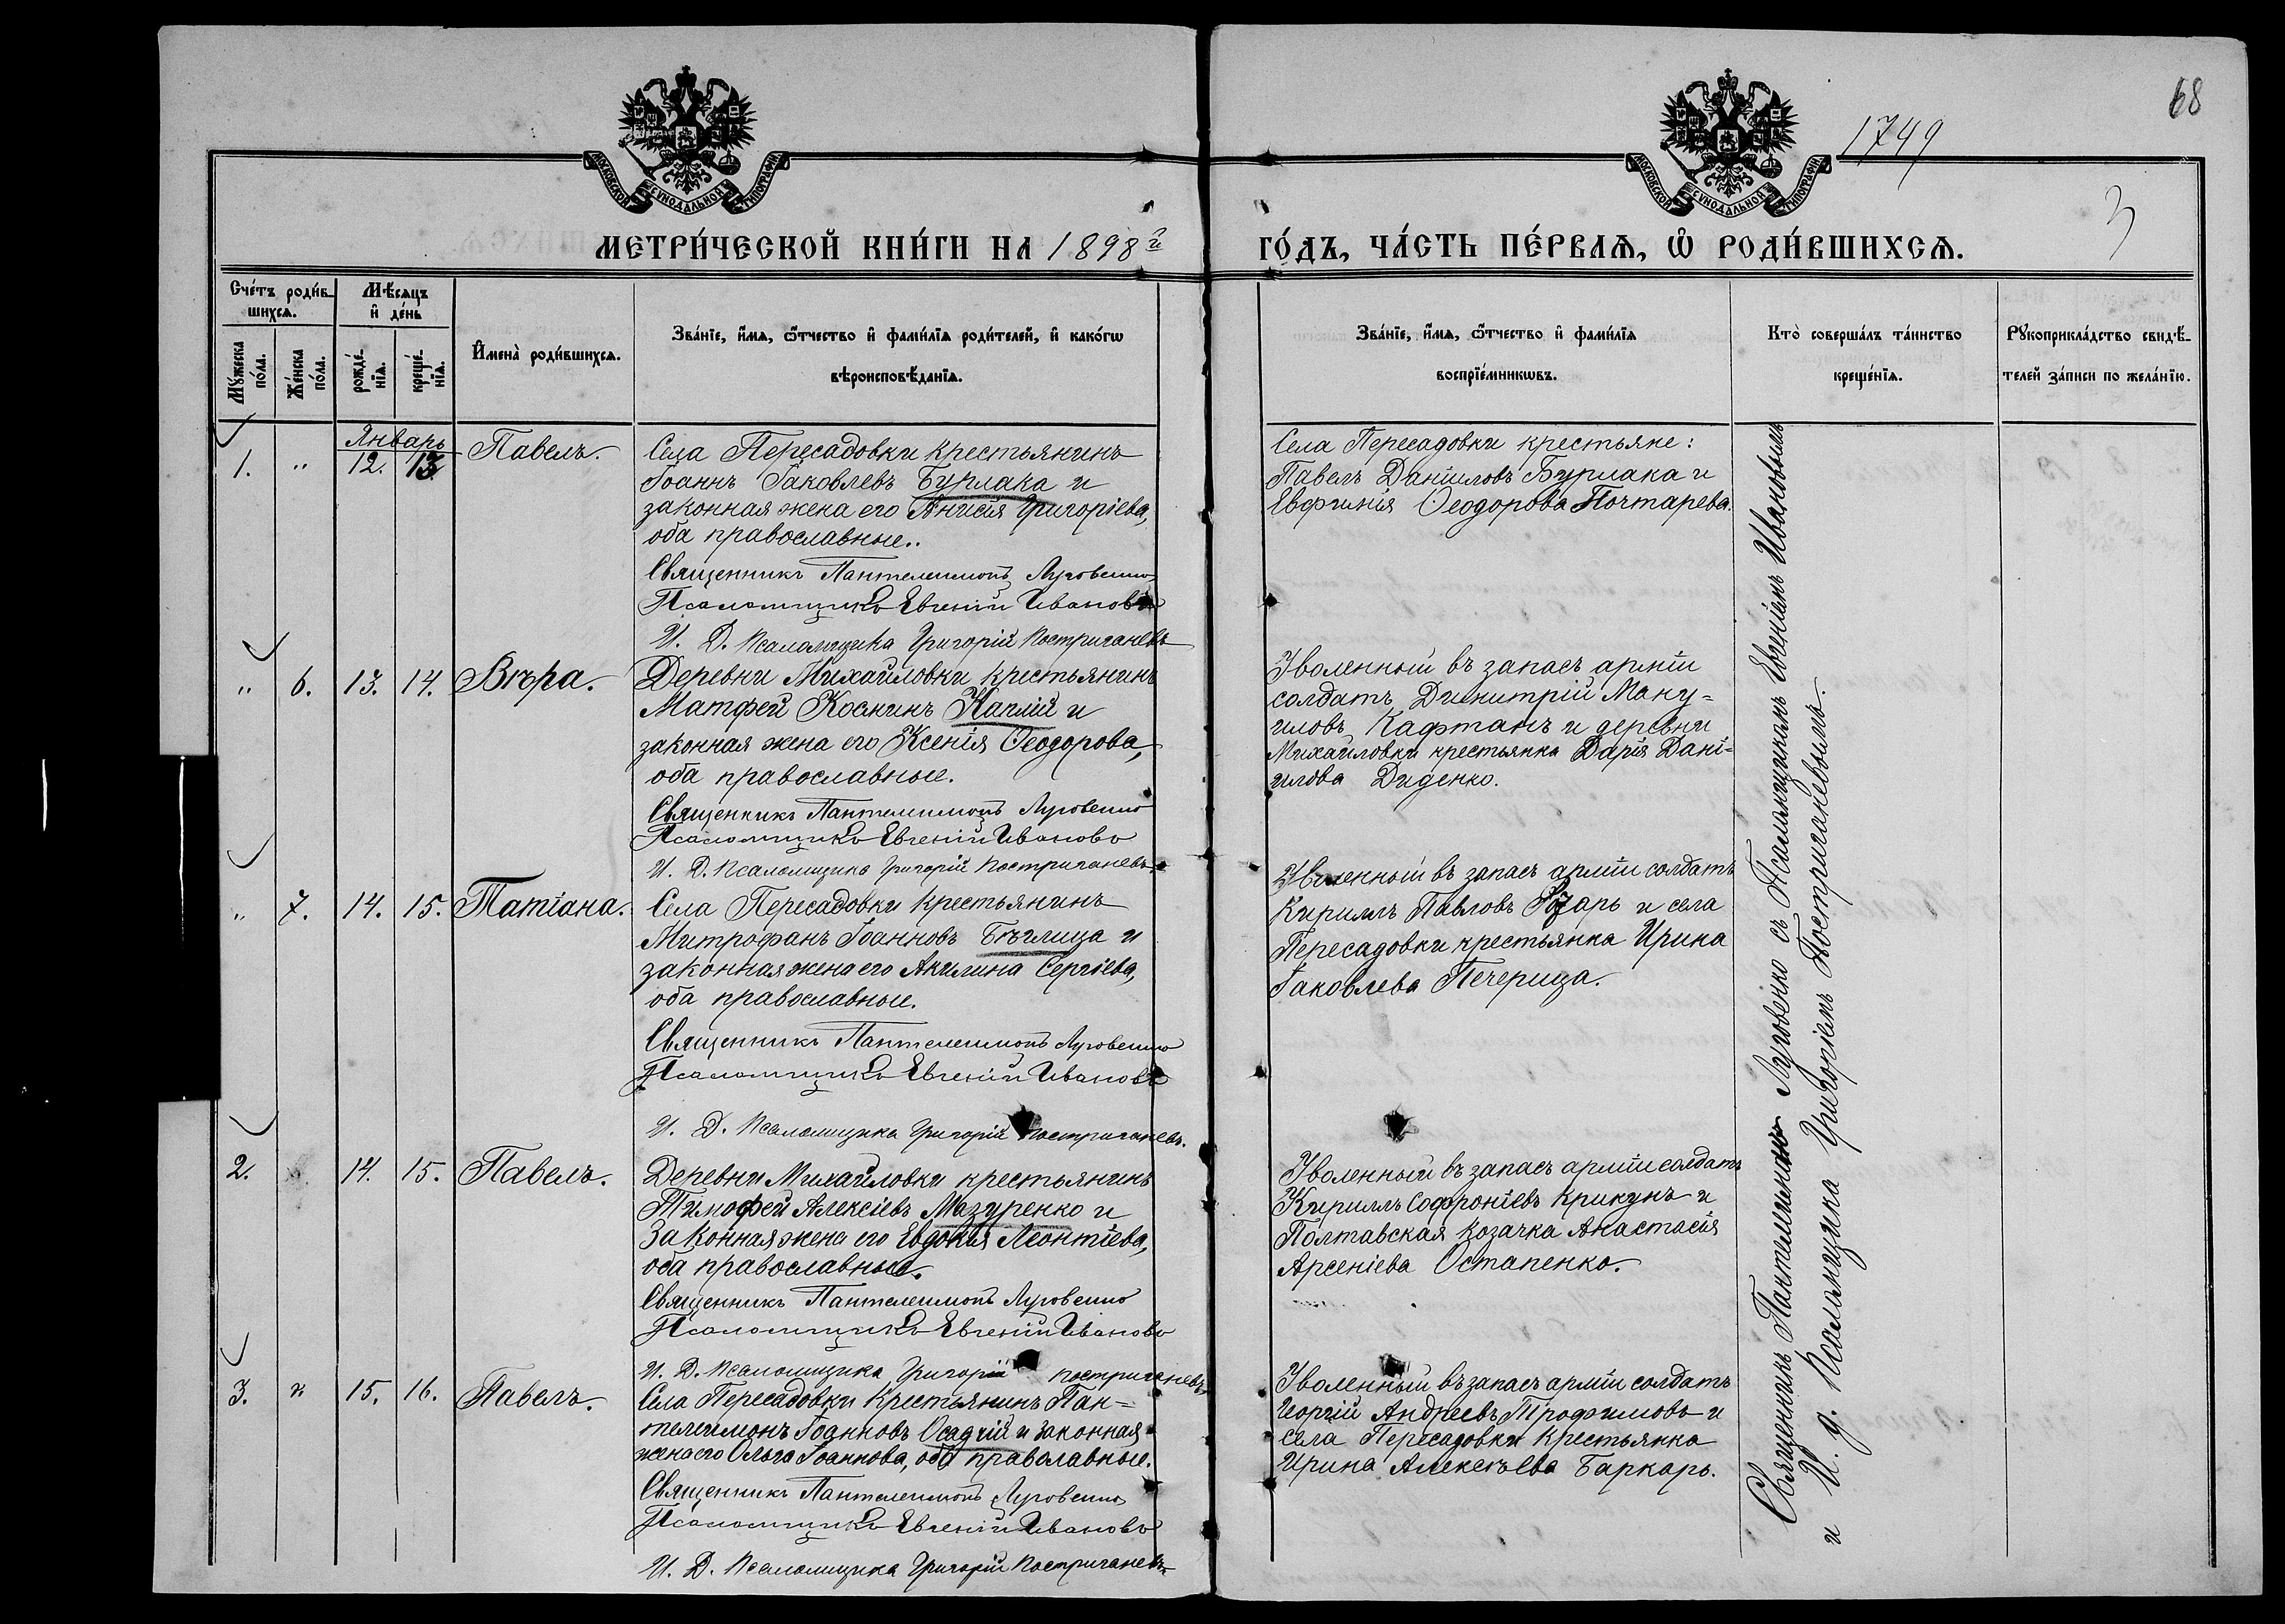 68
1749
3
МОСКОВСКОЙ СУНОДАЛЬНОЙ ТИПОГРАФІИ
МОСКОВСКОЙ СУНОДАЛЬНОЙ ТИПОГРАФІИ
МЕТРИ́ЧЕСКОЙ КНИ́ГИ НА 1898 й
ГО́ДЪ, ЧА́СТЬ ПЕ́РВАѦ, Ѽ РОДИ́ВШИХСѦ.
Сче́тъ роди́в-
шихсѧ.
Мꙋ́жеска по́ла.
Же́нска по́ла.
Мѣ́сѧцъ
и҆ де́нь
рожде́-
нїѧ.
креще́-
нїѧ.
И҆мена̀ роди́вшихсѧ.
Зва́нїе, и҆́мѧ, ѻ҆́тчество и҆ фами́лїѧ роди́телей, и҆ како́гѡ
вѣроисповѣ́данїѧ.
Зва́нїе, и҆́мѧ, ѻ҆́тчество и҆ фами́лїѧ
воспрїе́мникѡвъ.
Кто̀ соверша́лъ та́инство
креще́нїѧ.
Рꙋкоприкла́дство свидѣ́-
телей за́писи по жела́нїю.
Январь
1. " 12. 13. Павелъ.
Села Пересадовки крестьянинъ
Іоаннъ Іаковлевъ Бурлака и
законная жена его Анисія Григоріева,
оба православные..
Священникъ Пантелеимонъ Луговенко
Псаломщикъ Евгеній Ивановъ
И. Д. Псаломщика Григорій Постриганевъ
Села Пересадовки крестьяне:
Павелъ Даніиловъ Бурлака и
Евфимія Ѳеодорова Почтарева.
" 6. 13. 14. Вѣра.
Деревни Михайловки крестьянинъ
Матфей Косминъ Каплій и
законная жена его Ксенія Ѳеодорова,
оба православные.
Священникъ Пантелеимонъ Луговенко
Псаломщикъ Евгеній Ивановъ
И. Д. Псаломщика Григорій Постриганевъ
Уволенный въ запасъ арміи
солдатъ Димитрій Ману=
иловъ Кафтанъ и деревни
Михайловки крестьянка Дарія Дані=
илова Диденко.
" 7. 14. 15. Татіана.
Села Пересадовки крестьянинъ
Митрофанъ Іоанновъ Бѣлица и
законная жена его Акилина Сергіева,
оба православные.
Священникъ Пантелеимонъ Луговенко
Псаломщикъ Евгеній Ивановъ
И. Д. Псаломщика Григорій Постриганевъ.
Уволенный въ запасъ арміи солдатъ
Кириллъ Павловъ и села
Пересадовки крестьянка Ирина
Іаковлева Печерица.
2. 14. 15. Павелъ.
Деревни Михайловки крестьянинъ
Тимофей Алексіевъ Мазуренко и
Законная жена его Евдокія Леонтіева,
оба православные.
Священникъ Пантелеимонъ Луговенко
Псаломщикъ Евгеній Ивановъ
И. Д. Псаломщика Григорій Постриганевъ
Уволенный въ запасъ арміи солдатъ
Кириллъ Софроніевъ Крикунъ и
Полтавская козачка Анастасія
Арсеніева Остапенко.
3. " 15. 16. Павелъ.
Села Пересадовки Крестьянинъ Пан=
телеимонъ Іоанновъ Осадчій и Законная
жена его Ольга Іоаннова, оба православные.
Священникъ Пантелеимонъ Луговенко
Псаломщикъ Евгеній Ивановъ
И. Д. Псаломщика Григорій Постриганевъ
Уволенный въ запасъ арміи солдатъ
Георгій Андреевъ Трофимовъ и
села Пересадовки Крестьянка
Ирина Алексѣева Баркарь.
Священникъ Пантелеимонъ Луговенко съ Псаломщикомъ Евгеніемъ Ивановымъ
и И. д. Псаломщика Григоріемъ Постриганевымъ.